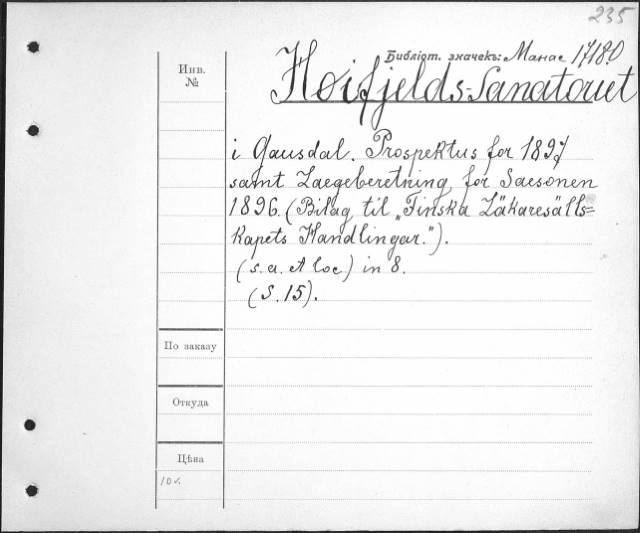 235
Библіот. значекъ: Манас 17180
Инв. №
Høifjelds-Sanatoriet
i Gausdal. Prospektus for 1897
samt Laegeberetning for Saesonen
1896. (Bilag til „Finska Läkaresälls=
kapets Handlingar.").
(s. a. et loc.) in 8.
(S. 15).
По заказу
Откуда
Цѣна